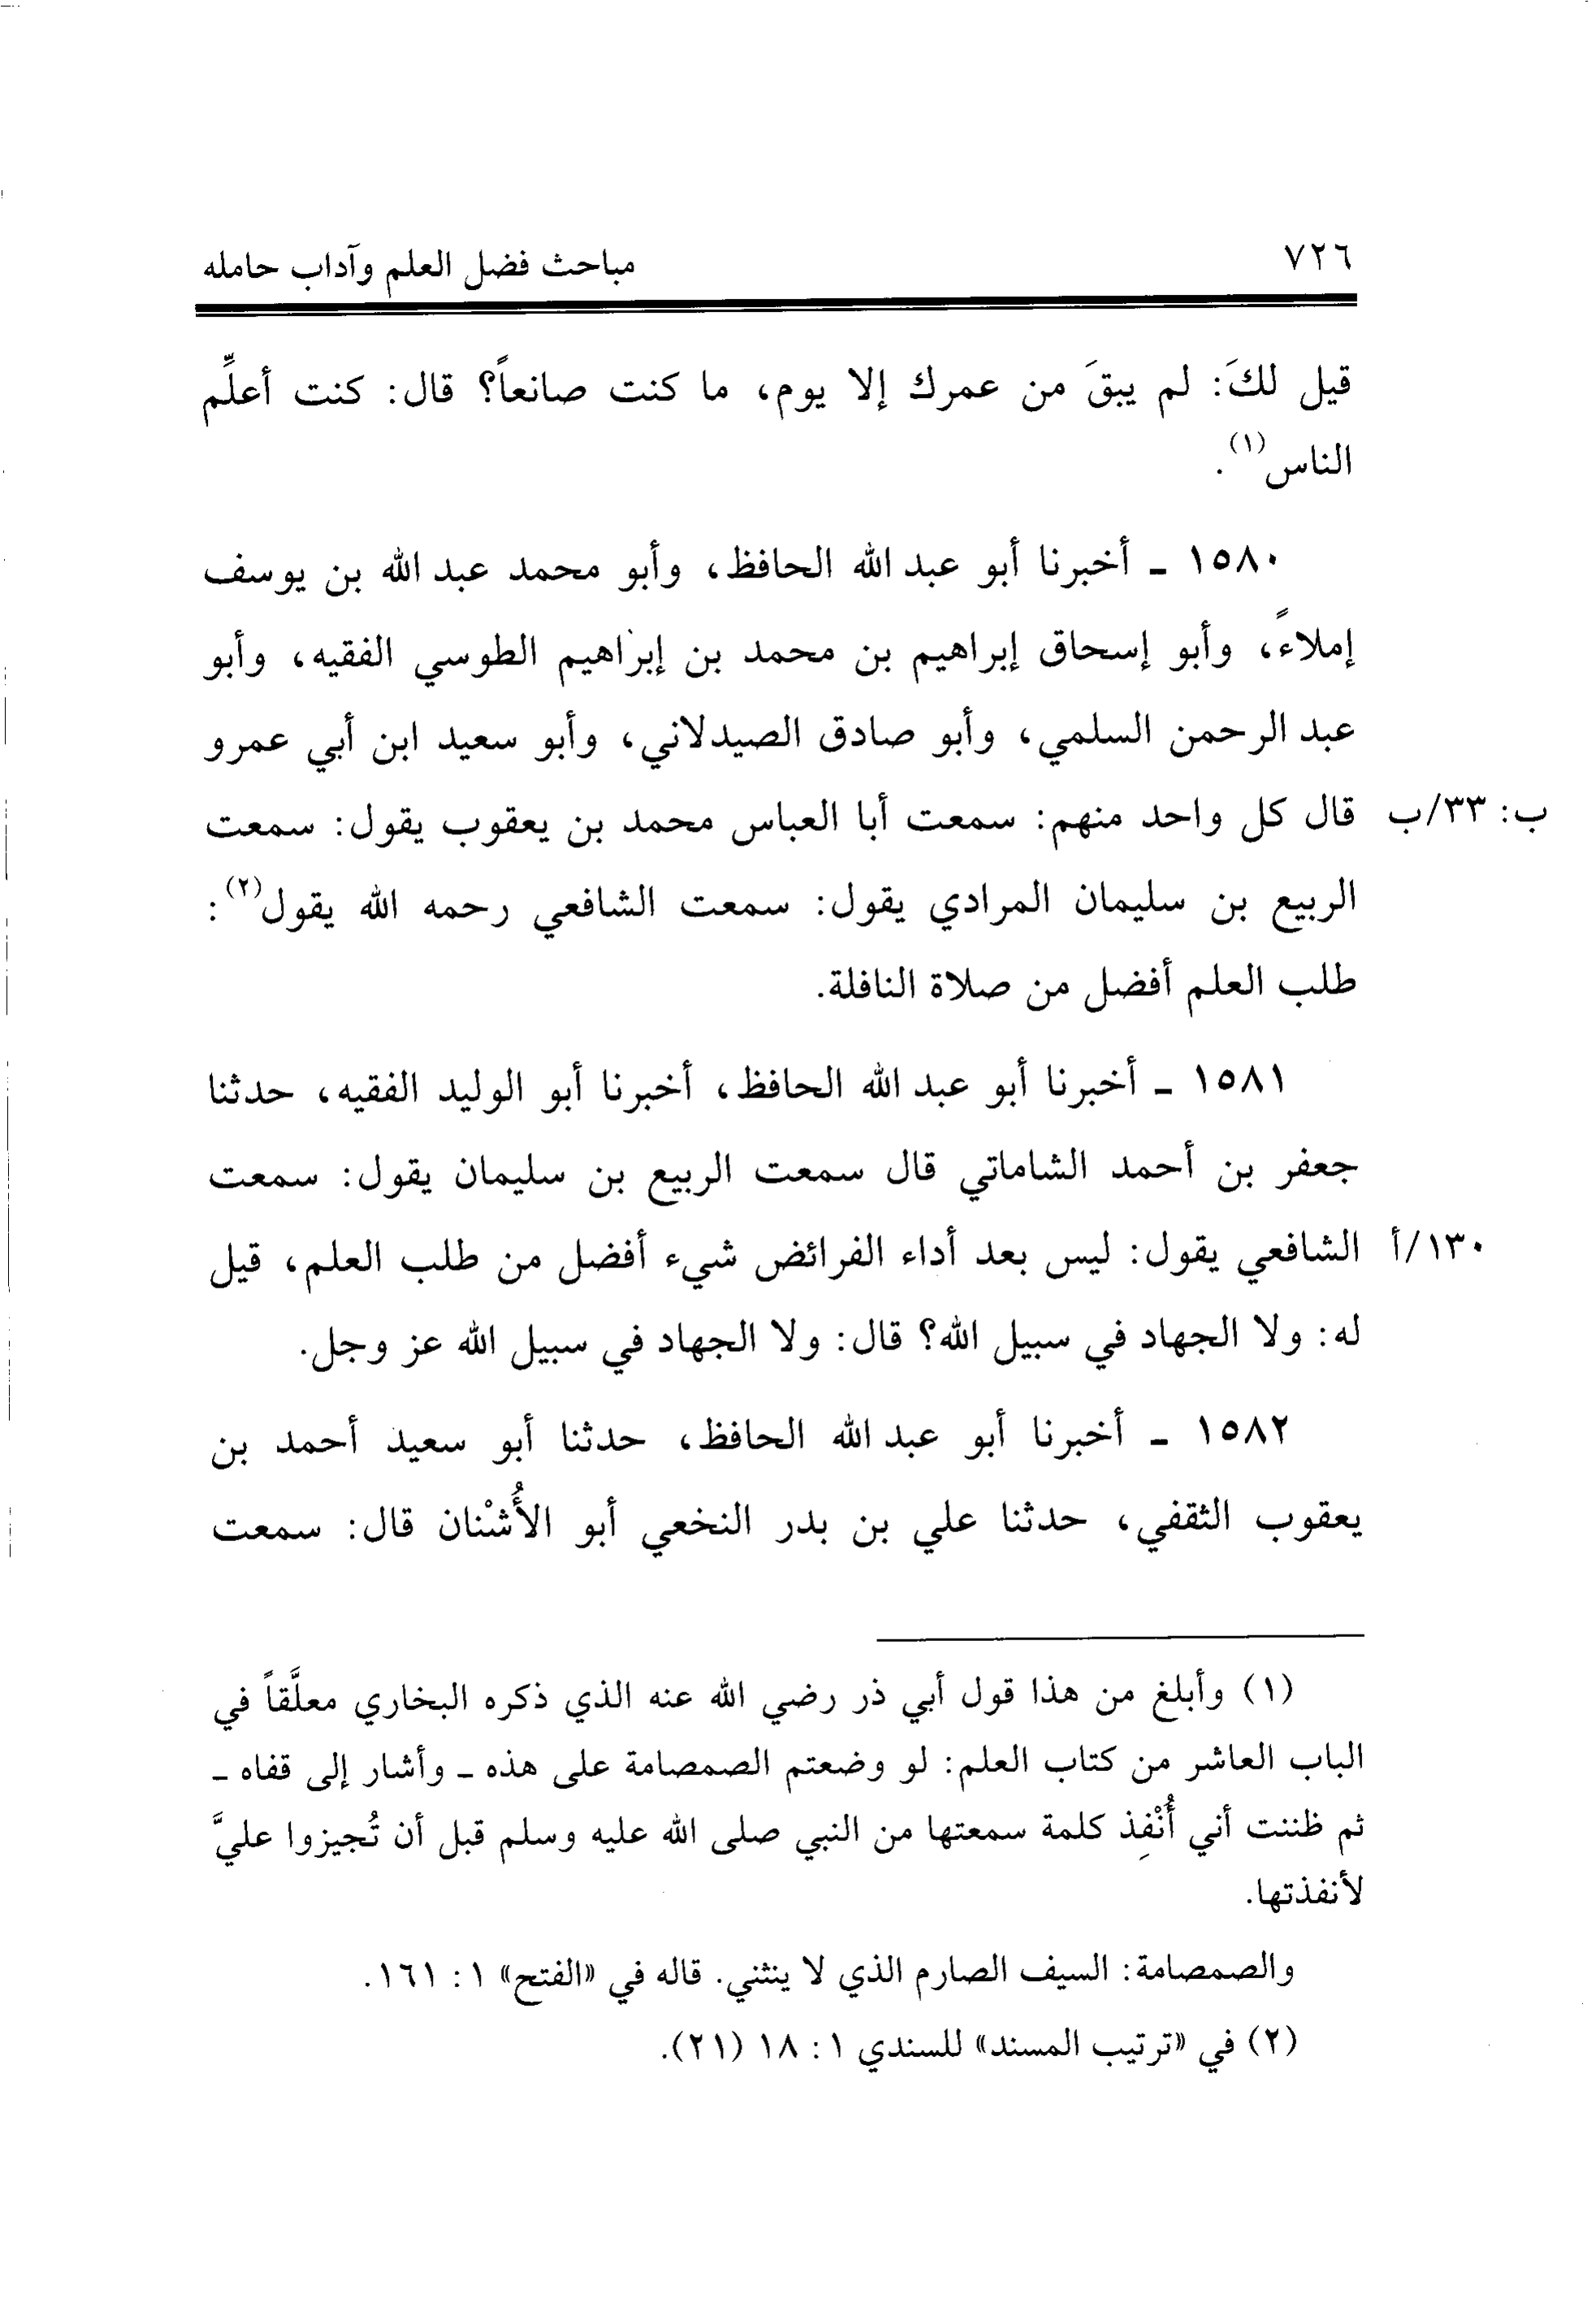 ٧٢٦ مباحث فضل العلم وآداب حامله
قيل لكَ: لم يبقَ من عمرك إلا يوم، ما كنت صانعاً؟ قال: كنت أعلِّم
الناس(١).
١٥٨٠ ـ أخبرنا أبو عبد الله الحافظ، وأبو محمد عبد الله بن يوسف
إملاءً، وأبو إسحاق إبراهيم بن محمد بن إبراهيم الطوسي الفقيه، وأبو
عبد الرحمن السلمي، وأبو صادق الصيدلاني، وأبو سعيد ابن أبي عمرو
ب: ٣٣/ب قال كل واحد منهم: سمعت أبا العباس محمد بن يعقوب يقول: سمعت
الربيع بن سليمان المرادي يقول: سمعت الشافعي رحمه الله يقول(٢):
طلب العلم أفضل من صلاة النافلة.
١٥٨١ ـ أخبرنا أبو عبد الله الحافظ، أخبرنا أبو الوليد الفقيه، حدثنا
جعفر بن أحمد الشاماتي قال سمعت الربيع بن سليمان يقول: سمعت
١٣٠/أ الشافعي يقول: ليس بعد أداء الفرائض شيء أفضل من طلب العلم، قيل
له: ولا الجهاد في سبيل الله؟ قال: ولا الجهاد في سبيل الله عز وجل.
١٥٨٢ ـ أخبرنا أبو عبد الله الحافظ، حدثنا أبو سعيد أحمد بن
يعقوب الثقفي، حدثنا علي بن بدر النخعي أبو الأُشْنان قال: سمعت
(١) وأبلغ من هذا قول أبي ذر رضي الله عنه الذي ذكره البخاري معلَّقاً في
الباب العاشر من كتاب العلم: لو وضعتم الصمصامة على هذه ـ وأشار إلى قفاه ـ
ثم ظننت أني أُنْفِذ كلمة سمعتها من النبي صلى الله عليه وسلم قبل أن تُجيزوا عليَّ
لأنفذتها.
والصمصامة: السيف الصارم الذي لا ينثني. قاله في «الفتح» ١: ١٦١.
(٢) في «ترتيب المسند» للسندي ١: ١٨ (٢١).